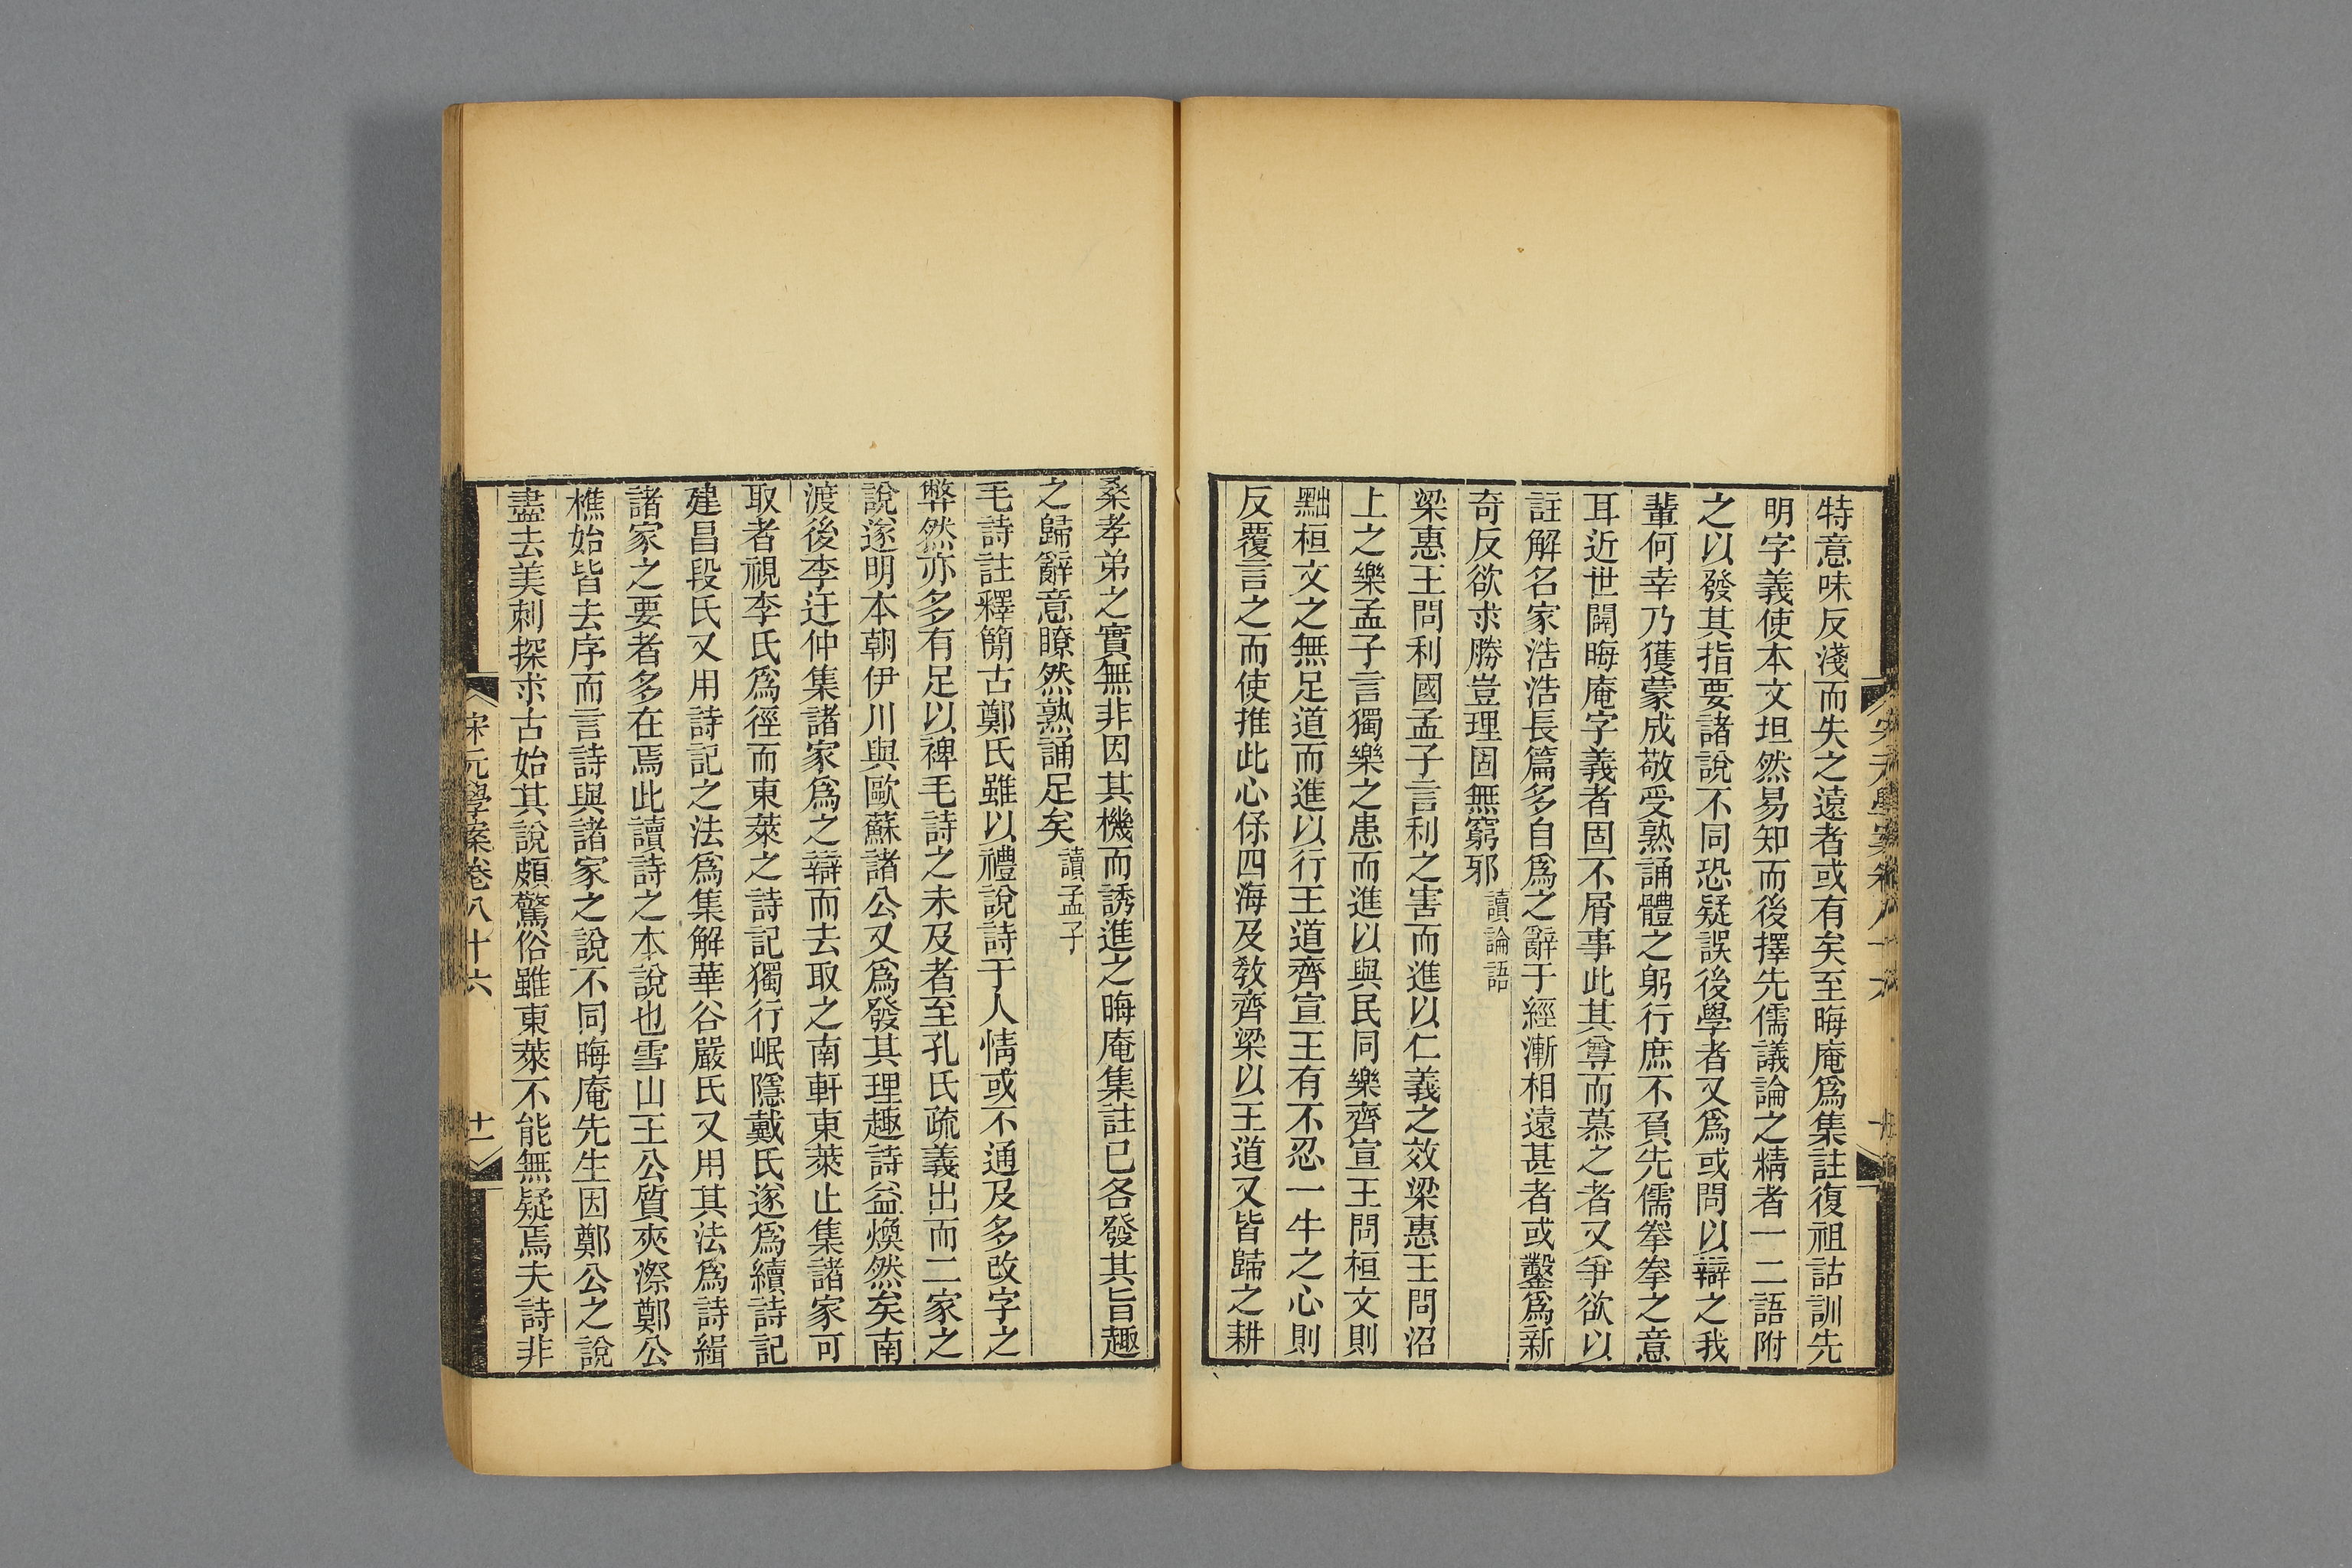 特意味反淺而失之遠者或有矣至晦庵爲集註復祖詁訓先
明字義使本文坦然易知而後擇先儒議論之精者一二語附
之以發其指要諸說不同恐疑誤後學者又爲或問以辯之我
輩何幸乃獲蒙成敬受熟誦體之躬行庶不負先儒拳拳之意
耳近世闢晦庵字義者固不屑事此其尊而慕之者又爭欲以
註解名家浩浩長篇多自爲之辭于經漸相遠甚者或鑿爲新
奇反欲求勝豈理固無窮邪讀論語
梁惠王問利國孟子言利之害而進以仁義之效梁惠王問沼
上之樂孟子言獨樂之患而進以與民同樂齊宣王問桓文則
黜桓文之無足道而進以行王道齊宣王有不忍一牛之心則
反覆言之而使推此心保四海及敎齊梁以王道又皆歸之耕
桑孝弟之實無非因其機而誘進之晦庵集註已各發其旨趣
之歸辭意瞭然熟誦足矣讀孟子
毛詩註釋簡古鄭氏雖以禮說詩于人情或不通及多改字之
弊然亦多有足以裨毛詩之未及者至孔氏疏義出而二家之
說遂明本朝伊川與歐蘇諸公又爲發其理趣詩益煥然矣南
渡後李迂仲集諸家爲之辯而去取之南軒東萊止集諸家可
取者視李氏爲徑而東萊之詩記獨行岷隱戴氏遂爲續詩記
建昌段氏又用詩記之法爲集解華谷嚴氏又用其法爲詩緝
諸家之要者多在焉此讀詩之本說也雪山王公質夾漈鄭公
樵始皆去序而言詩與諸家之說不同晦庵先生因鄭公之說
盡去美刺探求古始其說頗驚俗雖東萊不能無疑焉夫詩非
宋元學案卷八十六
十一